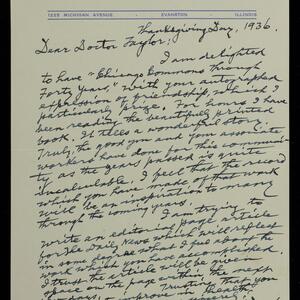 1225 MICHIGAN AVENUE · EVANSTON ILLINOIS
Thanksgiving Day, 1936.
Dear Doctor Taylor:
I am delighted
to have "Chicago Commons through
Forty Years," with your autographed
expression of friendship, which I
particularly prize. For hours I have
been reading the beautifully printed
book. It tells a wonderful story.
Truly, the good you and your associate
workers have done for this communi-
ty as the years passed is quite
incalculable. I feel that the record
which you have made of that work
will be an inspiration to many
through the coming years.
I am trying to
write an editorial page article
for The Daily News which will reflect
in some degree what I feel about the
work which you have accomplished.
I trust the article will be given
space on the page within the next
few days.
Trusting that you
improve in health